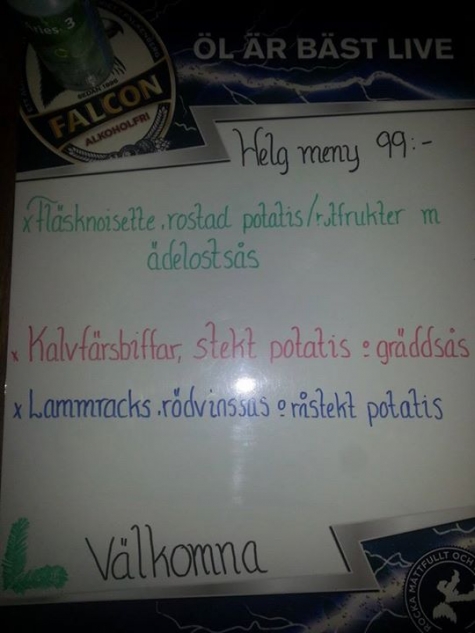 ries 3
SEDAN 1896
FALCON
ALKOHOLFRI
ÖL ÄR BÄST LIVE
Helg meny 99:-
x Fläsknoisette, rostad potatis/rotfrukter m
ädelostsås
x Kalvfärsbiffar, stekt potatis o gräddsås
x Lammracks, rödvinssås o råstekt potatis
Välkomna
ROCKA MÅTTFULLT OCH